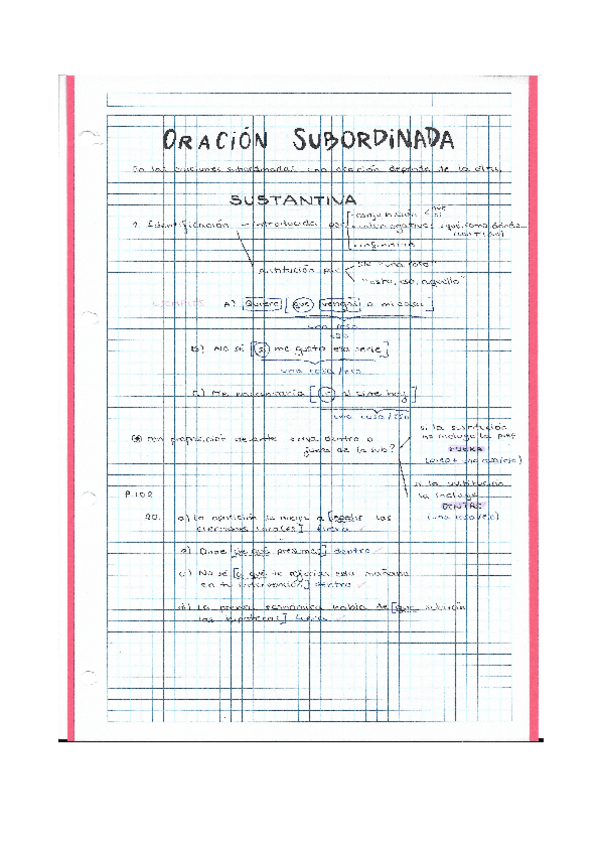 ORACIÓN SUBORDINADA
En las oraciones subordinadas una oración depende de la otra.
SUSTANTIVA
1. Identificación → introducida por
conjunción < que si
interrogativos: qué, cómo, dónde
infinitivo
sustitución por
"una cosa"
"esto, eso, aquello"
EJEMPLOS A) Quiero [que vengas a mi casa]
una cosa
eso
b) No sé [si me gusta esa serie]
una cosa/eso
c) Me encantaría [ir al cine hoy]
una cosa/eso
con preposición delante dentro o
fuera de la sub?
si la sustitución
no incluye la prep
FUERA
si la sustitución
la incluye
DENTRO
(una cosa/eso)
P. 102
20. a) La oposición se niega a [ los
] fuera
b) Dime [de qué presumes] dentro
c) No sé [a qué te referías esta mañana
en tu intervención] dentro
d) La prensa económica habla de [que subirán
las hipotecas] fuera